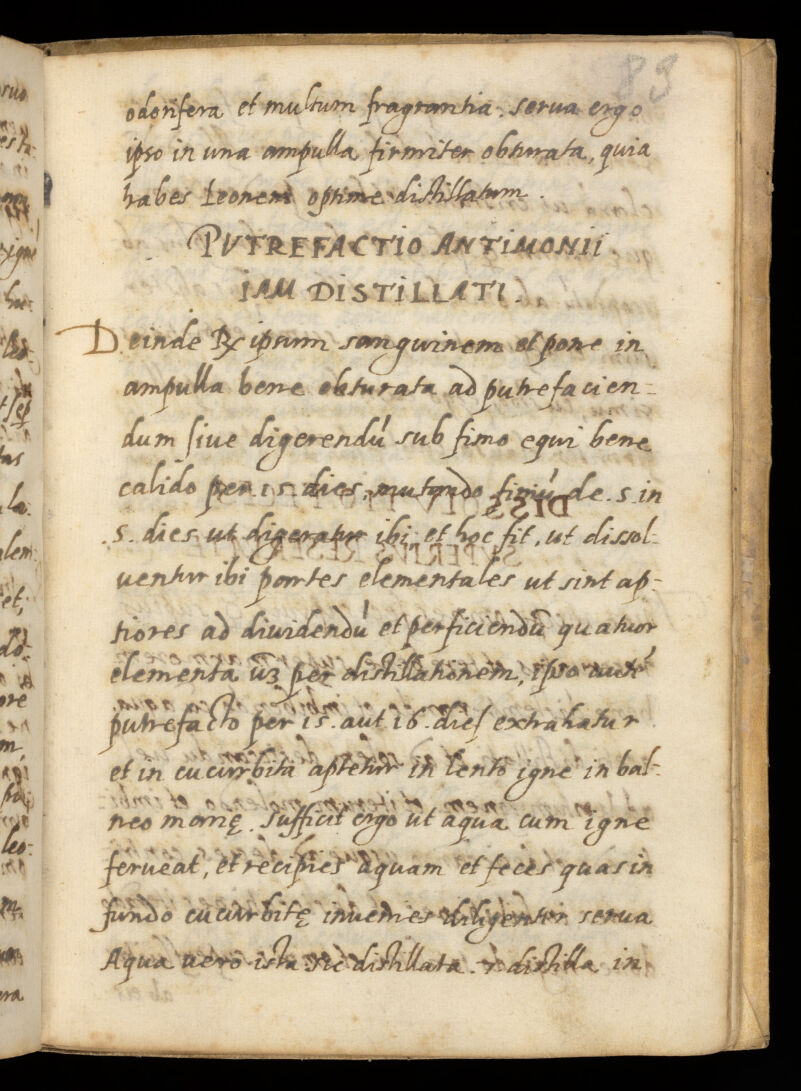 83
odorifera et multum fragrantia. serua ergo
ipso in una ampulla firmiter obturata, quia
habes Leonem optime distillatum.
PVTREFACTIO ANTIMONII
IAM DISTILLATI.
Deinde ℞ ipsum sanguinem et pone in
ampulla bene obturata ad putrefacien-
dum siue digerendú sub fimo equi bene
calido per 15. dies, mutando fimú de .5. in
.5. dies ut digeratur ibi, et hoc fit, ut dissol-
ventur ibi partes elementales ut sint ap-
tiores ad diuidendú et perficiendū quatuor
elementa uz per distillationem, ipso auté
putrefacto per 15. aut 16. dies extrahatur
et in cucurbita aptetur in lento igne in bal-
neo marię. sufficit ergo ut aqua cum igne
ferueat, et recipies aquam et feces quas in
fundo cucurbitę inuenies diligenter serua
Aqua uero ista sic distillata. distilla in